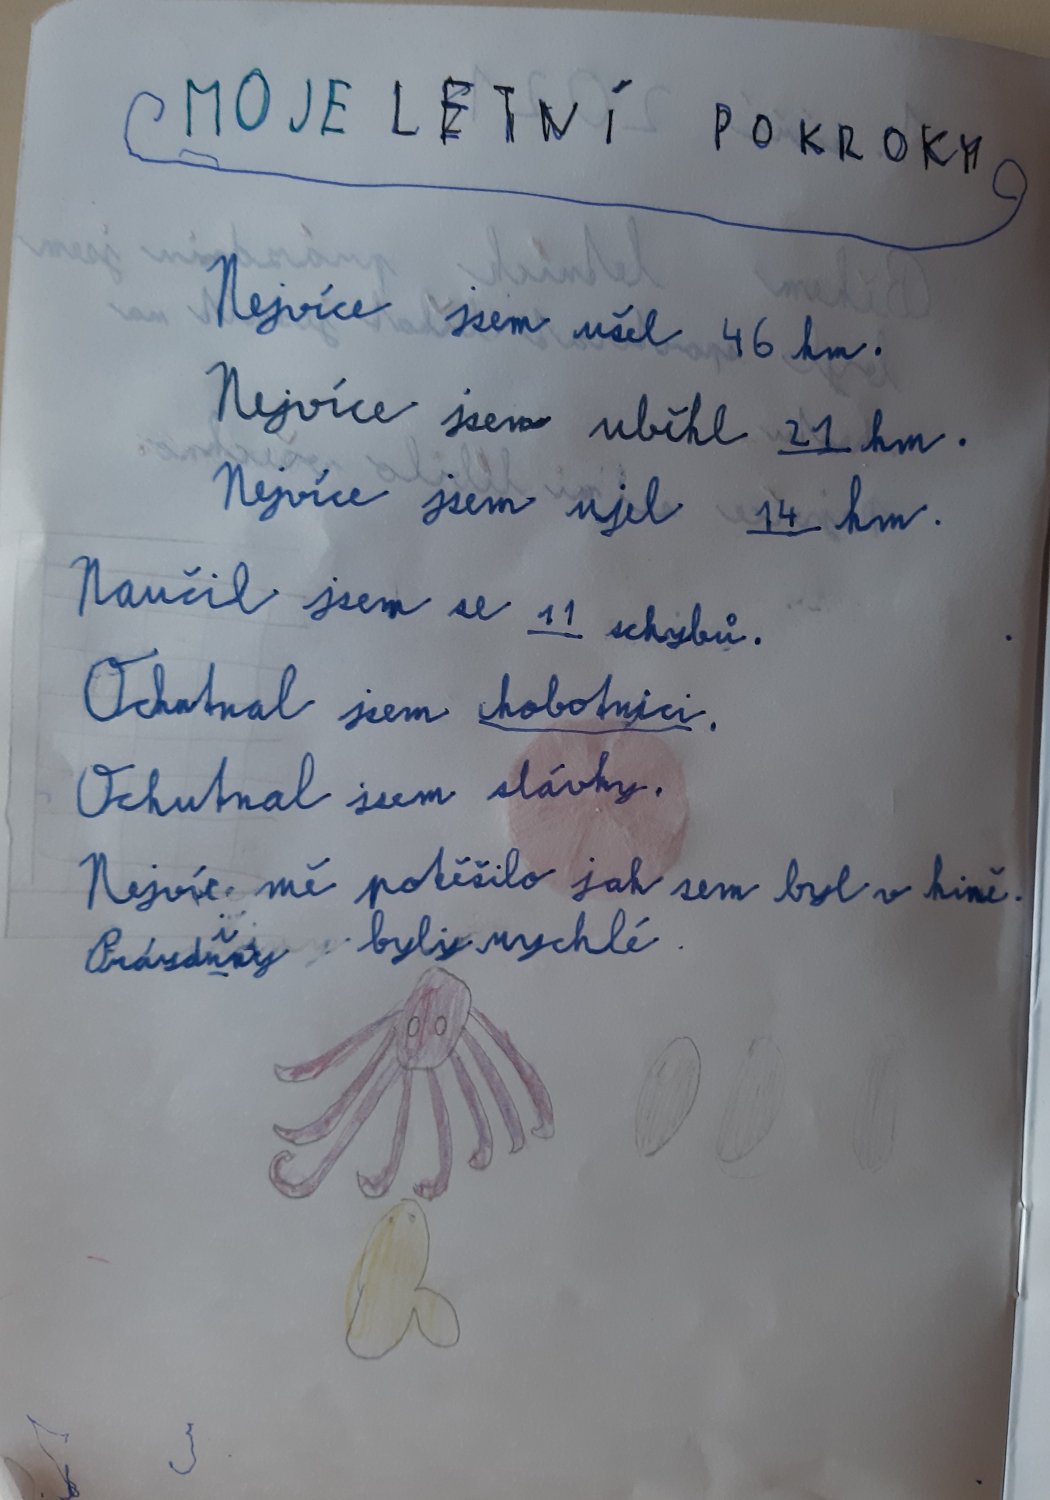 MOJE LETNÍ POKROKY
Nejvíce jsem ušel 46 km.
Nejvíce jsem uběhl 21 km.
Nejvíce jsem ujel 14 km.
Naučil jsem se 11 schybů.
Ochutnal jsem chobotnici.
Ochutnal jsem slávky.
Nejvíc mě potěšilo jak sem byl v kině.
byly rychlé.